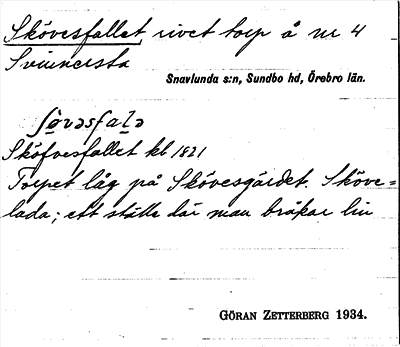 Skövesfallet, rivet torp å nr 4
Svinnersta
Snavlunda s:n, Sundbo hd, Örebro län.
ʃö̀vəsfalə
Sköfvesfallet kb 1821
Torpet låg på Skövesgärdet. Skäve=
lada; ett ställe där man bråkar lin
GÖRAN ZETTERBERG 1934.